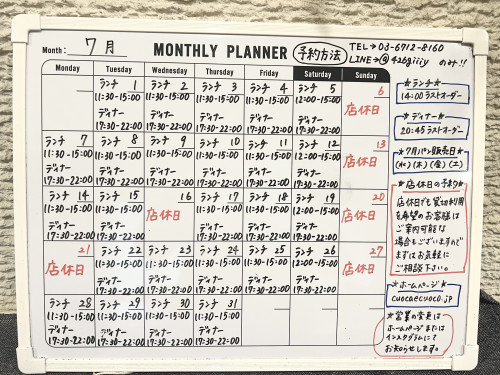 Month: 7月
MONTHLY PLANNER
予約方法
TEL→03-6712-8160
LINE→@426giiiy のみ!!
Monday Tuesday Wednesday Thursday Friday Saturday Sunday
ランチ 1 ランチ 2 ランチ 3 ランチ 4 ランチ 5 6
11:30-15:00 11:30-15:00 11:30-15:00 11:30-15:00 12:00-15:00 店休日
ディナー ディナー ディナー ディナー ディナー
17:30-22:00 17:30-22:00 17:30-22:00 17:30-22:00 17:30-22:00
ランチ 7 ランチ 8 ランチ 9 ランチ 10 ランチ 11 ランチ 12 13
11:30-15:00 11:30-15:00 11:30-15:00 11:30-15:00 11:30-15:00 12:00-15:00 店休日
ディナー ディナー ディナー ディナー ディナー ディナー
17:30-22:00 17:30-22:00 17:30-22:00 17:30-22:00 17:30-22:00 17:30-22:00
ランチ 14 ランチ 15 16 ランチ 17 ランチ 18 ランチ 19 20
11:30-15:00 11:30-15:00 店休日 11:30-15:00 11:30-15:00 12:00-15:00 店休日
ディナー ディナー ディナー ディナー ディナー
17:30-22:00 17:30-22:00 17:30-22:00 17:30-22:00 17:30-22:00
21 ランチ 22 ランチ 23 ランチ 24 ランチ 25 ランチ 26 27
店休日 11:30-15:00 11:30-15:00 11:30-15:00 11:30-15:00 12:00-15:00 店休日
ディナー ディナー ディナー ディナー ディナー
17:30-22:00 17:30-22:00 17:30-22:00 17:30-22:00 17:30-22:00
ランチ 28 ランチ 29 ランチ 30 ランチ 31
11:30-15:00 11:30-15:00 11:30-15:00 11:30-15:00
ディナー ディナー ディナー ディナー
17:30-22:00 17:30-22:00 17:30-22:00 17:30-22:00
*ランチ*
14:00ラストオーダー
*ディナー*
20:45ラストオーダー
*7月パン販売日*
(水)(木)(金)(土)
*店休日の予約*
店休日でも貸切利用
を希望のお客様は
ご案内可能な
場合もございますので
まずはお気軽に
ご相談下さい。
*ホームページ*
cuocaecuoco.jp
*営業の変更は
ホームページまたは
インスタグラムにて
お知らせします。